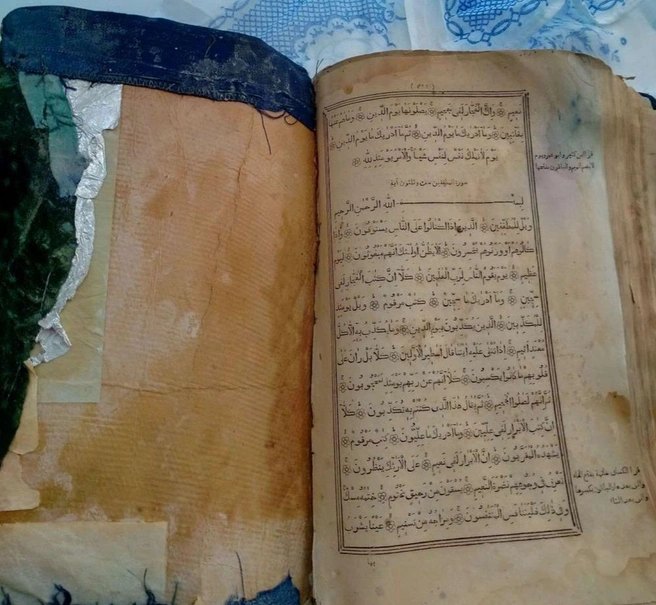 نَعِيمٍ ۞ وَاِنَّ الْفُجَّارَ لَفِى جَحِيمٍ ۞ يَصْلَوْنَهَا يَوْمَ الدِّينِ ۞ وَمَا هُمْ عَنْهَا
بِغَائِبِينَ ۞ وَمَا اَدْرٰيكَ مَا يَوْمُ الدِّينِ ۞ ثُمَّ مَا اَدْرٰيكَ مَا يَوْمُ الدِّينِ ۞
يَوْمَ لَا تَمْلِكُ نَفْسٌ لِنَفْسٍ شَيْئًا وَالْاَمْرُ يَوْمَئِذٍ لِلّٰهِ ۞
سورة المطففين ست وثلثون آية
بِسْمِ اللّٰهِ الرَّحْمٰنِ الرَّحِيمِ
وَيْلٌ لِلْمُطَفِّفِينَ ۞ الَّذِينَ اِذَا اكْتَالُوا عَلَى النَّاسِ يَسْتَوْفُونَ ۞ وَاِذَا
كَالُوهُمْ اَوْ وَزَنُوهُمْ يُخْسِرُونَ ۞ اَلَا يَظُنُّ اُولٰئِكَ اَنَّهُمْ مَبْعُوثُونَ ۞ لِيَوْمٍ
عَظِيمٍ ۞ يَوْمَ يَقُومُ النَّاسُ لِرَبِّ الْعٰلَمِينَ ۞ كَلَّا اِنَّ كِتٰبَ الْفُجَّارِ لَفِى
سِجِّينٍ ۞ وَمَا اَدْرٰيكَ مَا سِجِّينٌ ۞ كِتٰبٌ مَرْقُومٌ ۞ وَيْلٌ يَوْمَئِذٍ
لِلْمُكَذِّبِينَ ۞ الَّذِينَ يُكَذِّبُونَ بِيَوْمِ الدِّينِ ۞ وَمَا يُكَذِّبُ بِهِ اِلَّا كُلُّ
مُعْتَدٍ اَثِيمٍ ۞ اِذَا تُتْلٰى عَلَيْهِ اٰيٰتُنَا قَالَ اَسٰطِيرُ الْاَوَّلِينَ ۞ كَلَّا بَلْ رَانَ عَلٰى
قُلُوبِهِمْ مَا كَانُوا يَكْسِبُونَ ۞ كَلَّا اِنَّهُمْ عَنْ رَبِّهِمْ يَوْمَئِذٍ لَمَحْجُوبُونَ ۞
ثُمَّ اِنَّهُمْ لَصَالُوا الْجَحِيمِ ۞ ثُمَّ يُقَالُ هٰذَا الَّذِى كُنْتُمْ بِهِ تُكَذِّبُونَ ۞ كَلَّا
اِنَّ كِتٰبَ الْاَبْرَارِ لَفِى عِلِّيِّينَ ۞ وَمَا اَدْرٰيكَ مَا عِلِّيُّونَ ۞ كِتٰبٌ مَرْقُومٌ ۞
يَشْهَدُهُ الْمُقَرَّبُونَ ۞ اِنَّ الْاَبْرَارَ لَفِى نَعِيمٍ ۞ عَلَى الْاَرَائِكِ يَنْظُرُونَ ۞
تَعْرِفُ فِى وُجُوهِهِمْ نَضْرَةَ النَّعِيمِ ۞ يُسْقَوْنَ مِنْ رَحِيقٍ مَخْتُومٍ ۞ خِتٰمُهُ مِسْكٌ
وَفِى ذٰلِكَ فَلْيَتَنَافَسِ الْمُتَنَافِسُونَ ۞ وَمِزَاجُهُ مِنْ تَسْنِيمٍ ۞ عَيْنًا يَشْرَبُ